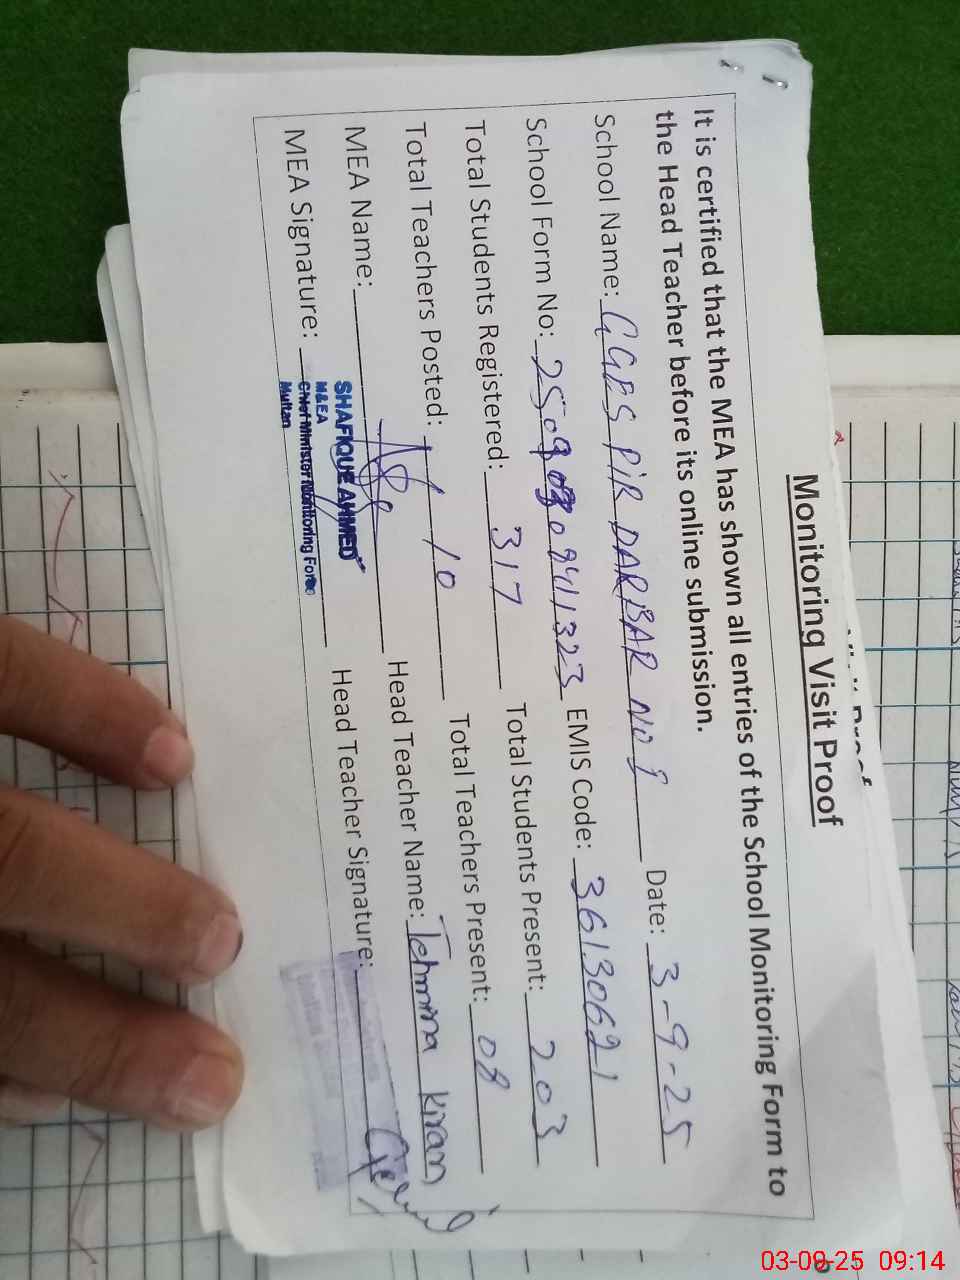 Monitoring Visit Proof
It is certified that the MEA has shown all entries of the School Monitoring Form to
the Head Teacher before its online submission.
School Name: GGPS PIR DARBAR NO 1 Date: 3-9-25
School Form No: EMIS Code: 36130621
Total Students Registered: 317 Total Students Present: 203
Total Teachers Posted: 10 Total Teachers Present: 08
MEA Name: Head Teacher Name: Tehmina Kiran
MEA Signature: Head Teacher Signature:
SHAFIQUE AHMED
M&EA
Chief Minister Monitoring Force
Multan
03-09-25 09:14